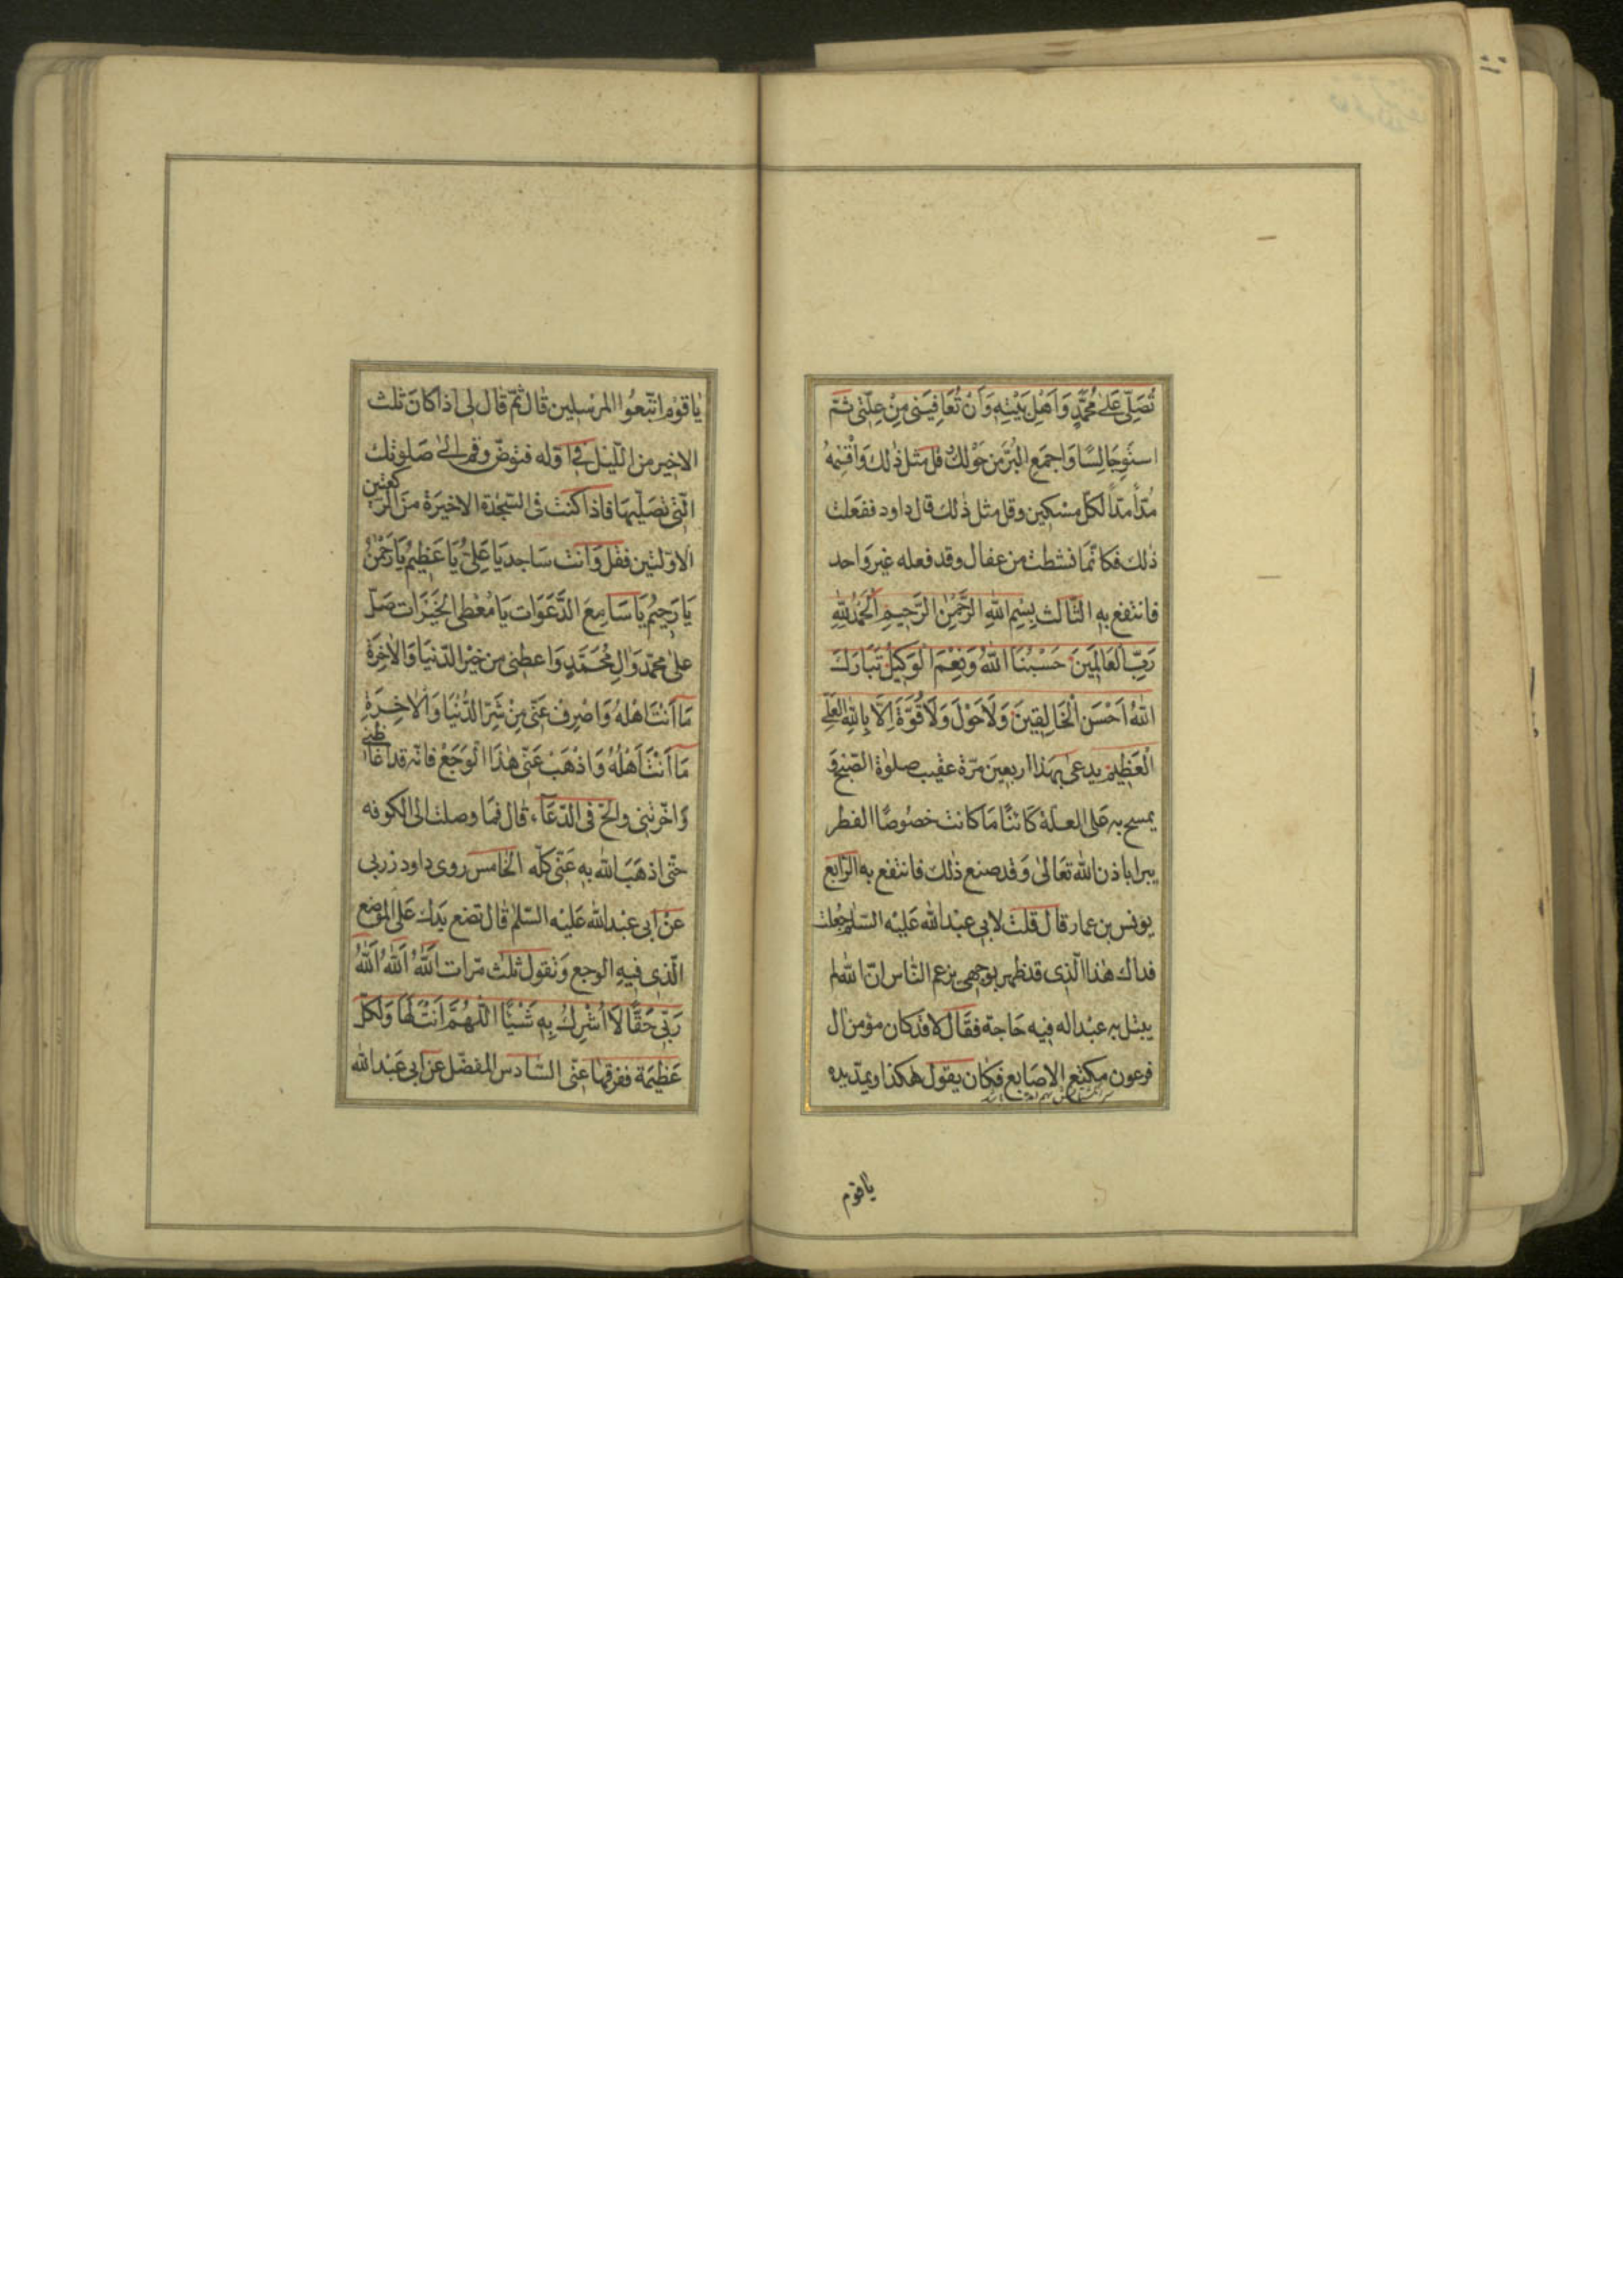 تُصَلِّيَ عَلىٰ مُحَمَّدٍ وَاَهْلِ بَيْتِهِ وَاَنْ تُعَافِيَنِي مِنْ عِلَّتِي ثمّ
استوِجَالِسًا وَاجمَعِ البُرَّ مِن حَوْلِكَ وقل مثل ذٰلك وَاقْسِمْهُ
مُدًّا مدًّا لكلّ مسْكِين وقل مثل ذٰلك قال داود ففعَلت
ذٰلك فكانّمَا نشطت من عقال وقد فعله غير وَاحد
فانتفع به الثّالث بِسْمِ اللهِ الرَّحْمٰنِ الرَّحِيمِ اَلْحَمْدُ لِلّٰهِ
رَبِّ الْعَالَمِينَ حَسْبُنَا اللّٰهُ وَنِعْمَ الْوَكِيلُ تَبَارَكَ
اللّٰهُ اَحْسَنُ الْخَالِقِينَ وَلَاحَوْلَ وَلَا قُوَّةَ اِلَّا بِاللّٰهِ الْعَلِيِّ
الْعَظِيمِ يدعىٰ بهذا اربعين مرّة عقيب صلوٰة الصّبح وَ
يمسح به عَلى العلّة كَائنًا مَا كانت خصُوصًا الفطر
يبرا باذن الله تعَالىٰ وَقد صنع ذٰلك فانتفع به الرّابع
يونس بن عمار قال قلت لابي عبْد الله عَليْه السّلم جُعلت
فداك هٰذا الّذي قد ظهر بوجهي يزعم النّاس انّ الله لم
يبتل به عبْدا له فيه حَاجة فقَال لا قد كان مؤمن ال
فرعون مكنّع الاصَابع فكان يقول هكذا ويمدّ يده
ياقوم
يٰا قوْم اتّبعُوا المرْسلين قٰال ثمّ قٰال لي اذا كٰانَ ثلث
الاخير من اللّيل في اوّله فتوضّ وقم الىٰ صَلوٰتك
الّتي تصَلّيهَا فاذا كنت في السّجْدة الاخيرَة منَ الرّكعتين
الاوّلتين فقل وَانت سَاجد يَا عَلِيُّ يَا عَظِيمُ يَا رَحْمٰنُ
يَا رَحِيمُ يَا سَامِعَ الدَّعَوَات يَا مُعْطِي الخَيْرَات صَلِّ
عَلىٰ محمّد وَاٰلِ مُحَمَّدٍ وَاعطِني من خيْر الدّنْيَا وَالاٰخِرَة
مَا اَنْتَ اَهْلهُ وَاصْرِفْ عَنّي مِنْ شَرِّ الدُّنْيَا وَالْاٰخِرَةِ
مَا اَنْتَ اَهْلُهُ وَاذْهَبْ عَنِّي هٰذَا الْوَجَعَ فانّه قد اغَاظني
وَاحْزنني والحّ في الدّعَاء، قٰال فمَا وصلت الى الكوفه
حتّى اذهَبَ الله به عَنّي كلّه الخامس روى داود زربي
عَنْ ابي عبْد الله عَليْه السّلم قٰال تضع يدَك عَلى المَوضع
الّذي فيهِ الوجع وَتقول ثلٰث مرّات اَللّٰهُ اَللّٰهُ اَللّٰهُ
رَبِّي حَقًّا لَا اُشْرِكُ بِهِ شَيْئًا اَللّٰهُمَّ اَنْتَ لَهَا وَلِكُلِّ
عَظيمَة ففرّقهَا عَنّي السّادس المفضّل عن ابي عَبْد الله